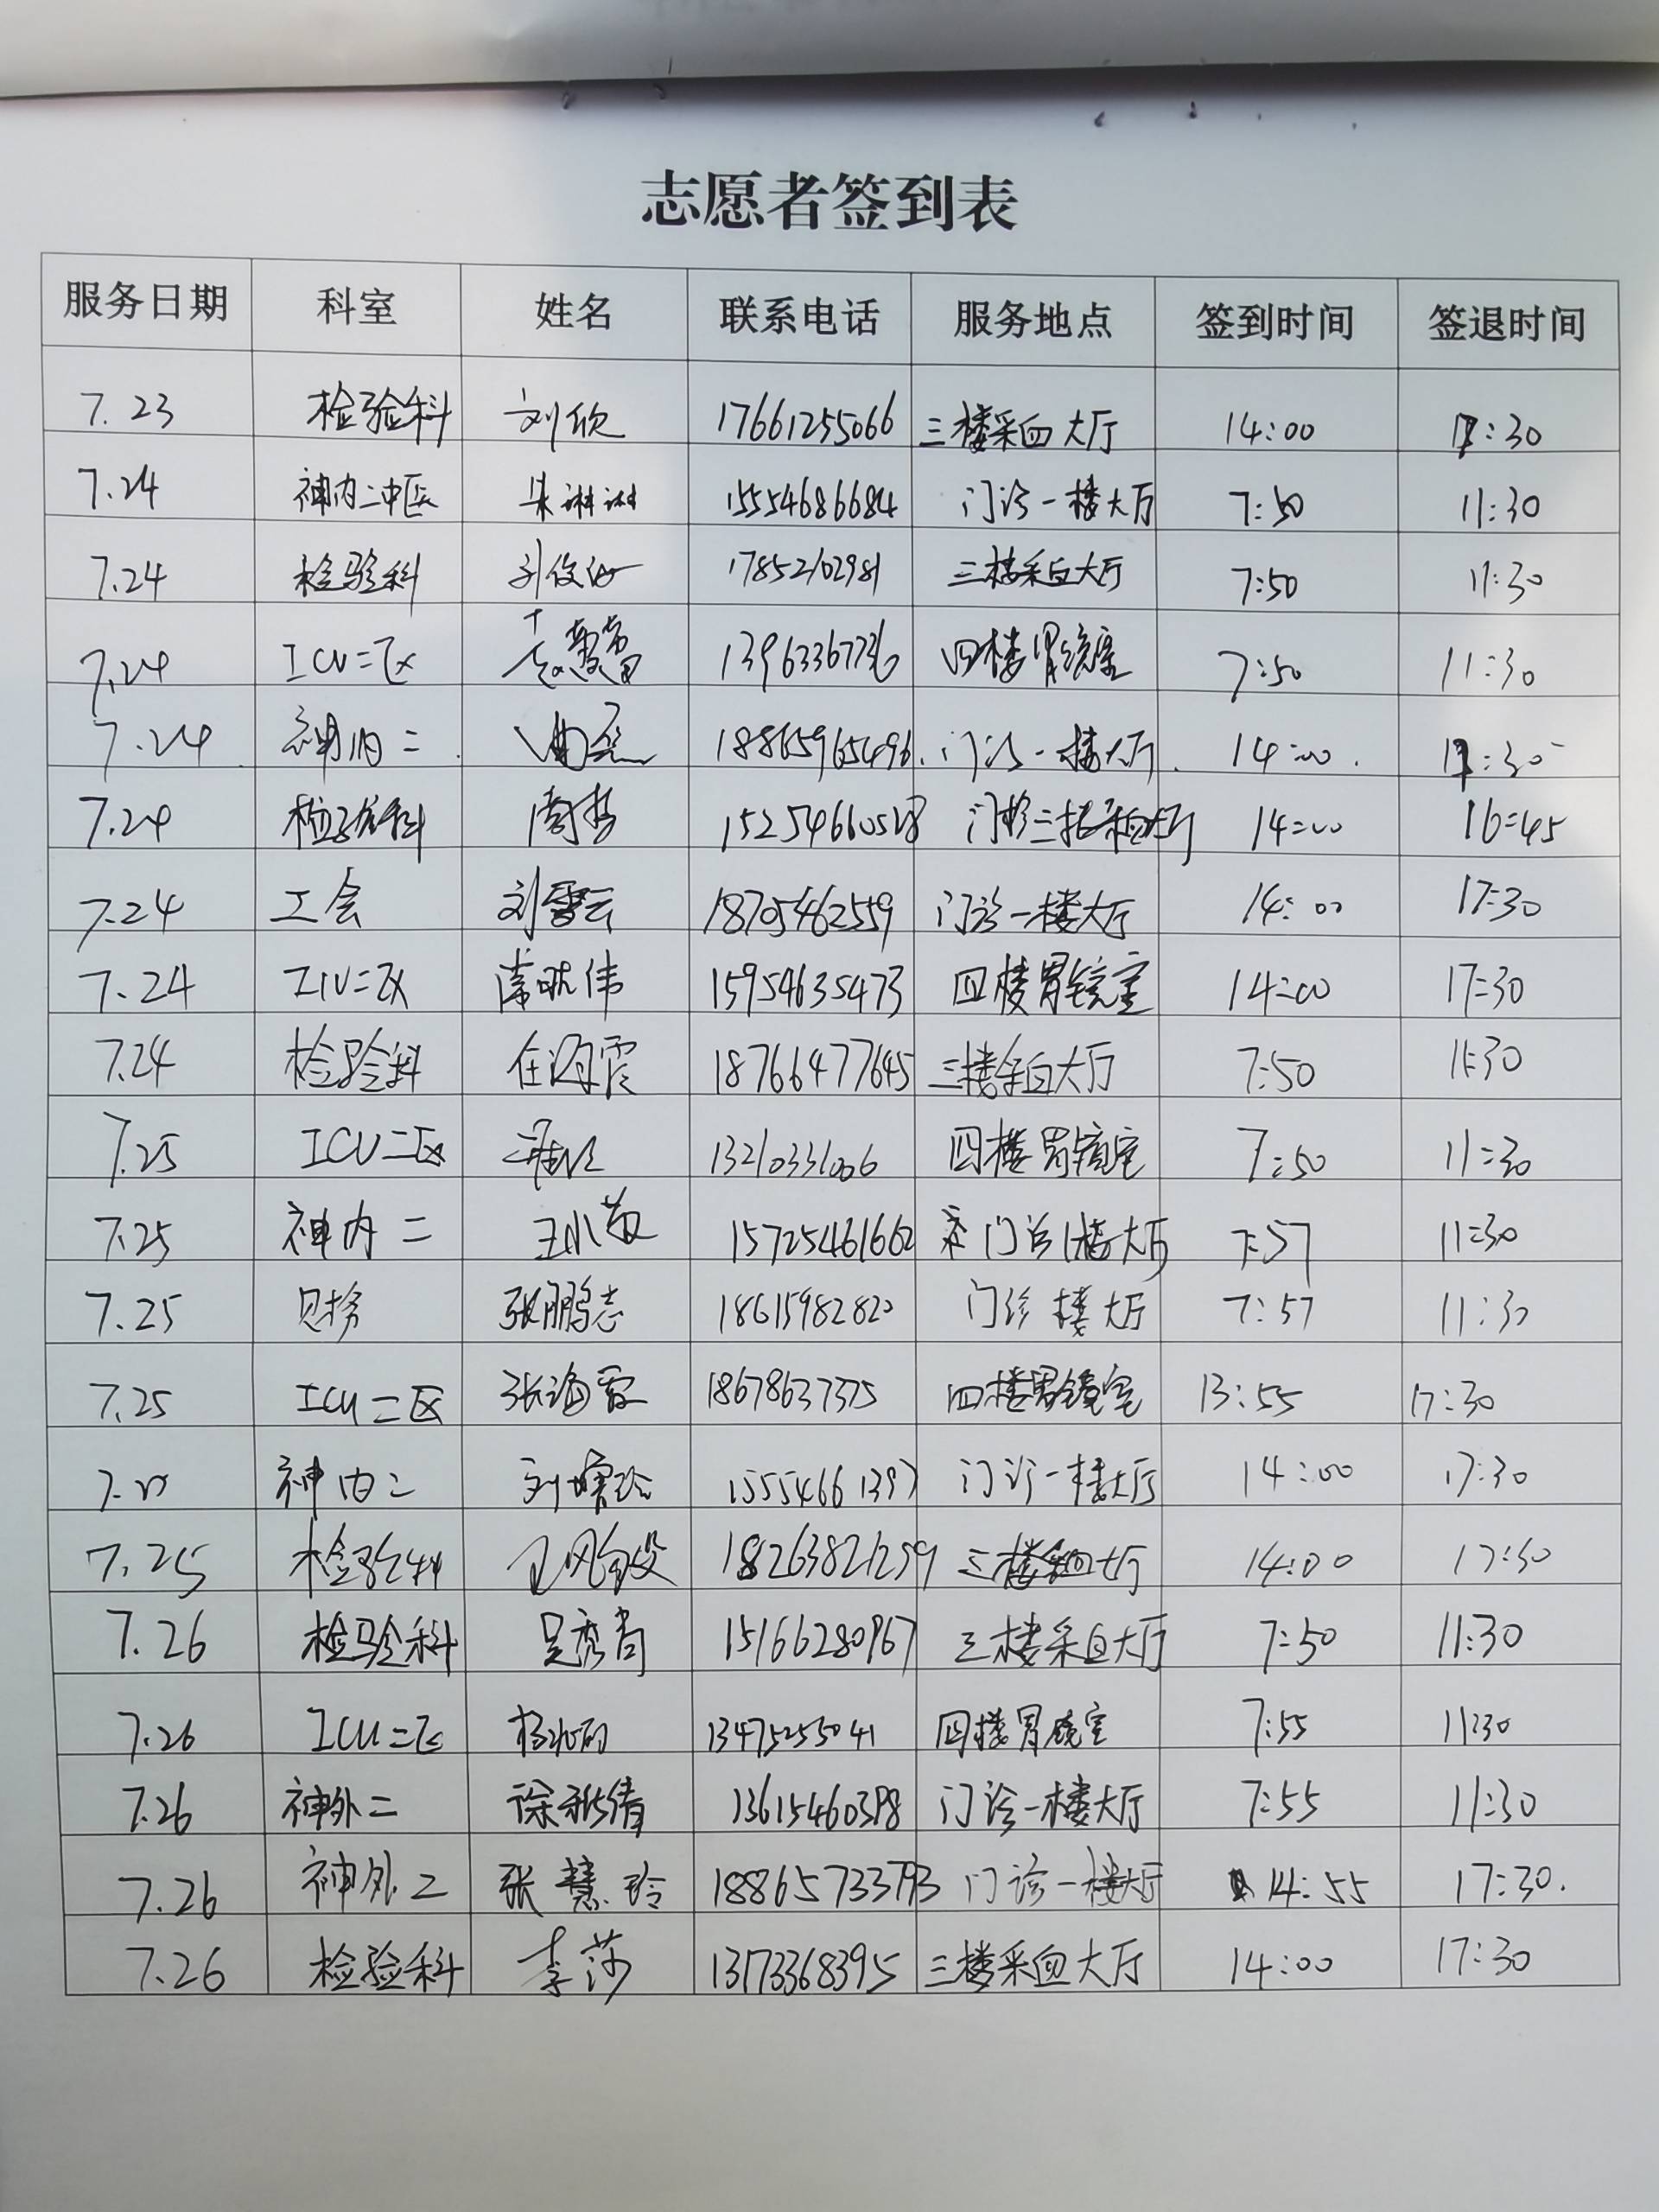 志愿者签到表
服务日期 科室 姓名 联系电话 服务地点 签到时间 签退时间
7.23 检验科 刘欣 17661255066 三楼采血大厅 14:00 17:30
7.24 神内二 15554686684 门诊一楼大厅 7:50 11:30
7.24 检验科 17852102981 三楼采血大厅 7:50 11:30
7.24 ICU二区 四楼胃镜室 7:50 11:30
7.24 神内二 18865965496 门诊一楼大厅 14:00 17:30
7.24 检验科 门诊三楼采血大厅 14:00 16:45
7.24 工会 刘雪云 18705462559 门诊一楼大厅 14:00 17:30
7.24 ICU二区 常晓伟 15954635473 四楼胃镜室 14:00 17:30
7.24 检验科 任海霞 18766477645 三楼采血大厅 7:50 11:30
7.25 ICU二区 13210331006 四楼胃镜室 7:50 11:30
7.25 神内二 王小敏 15725461662 门诊1楼大厅 7:57 11:30
7.25 财务 张鹏志 18615982820 门诊 楼大厅 7:57 11:30
7.25 ICU二区 张海霞 18678637375 四楼胃镜室 13:55 17:30
7.25 神内二 15554661397 门诊一楼大厅 14:00 17:30
7.25 检验科 18263821259 三楼采血大厅 14:00 17:30
7.26 检验科 吴秀尚 15166280967 三楼采血大厅 7:50 11:30
7.26 ICU二区 13475255041 四楼胃镜室 7:55 11:30
7.26 神外二 徐秋倩 13615460398 门诊一楼大厅 7:55 11:30
7.26 神外二 张慧玲 18865733793 门诊一楼大厅 14:55 17:30.
7.26 检验科 李莎 13173368395 三楼采血大厅 14:00 17:30